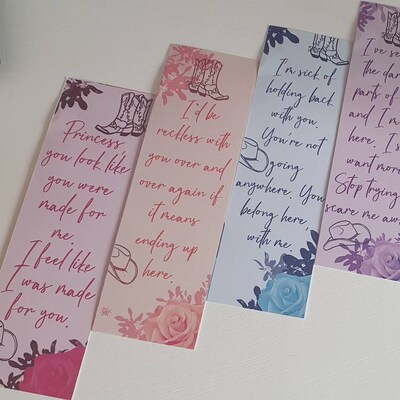 Princess
you look like
you were
made for
me.
I feel like
I was made
for you.
I'd be
reckless with
you over and
over again if
it means
ending up
here.
I'm sick of
holding back
with you.
You're not
going
anywhere. You
belong here,
with me.
I've
the
parts of
and I'm
here. I
want more
Stop trying
scare me away